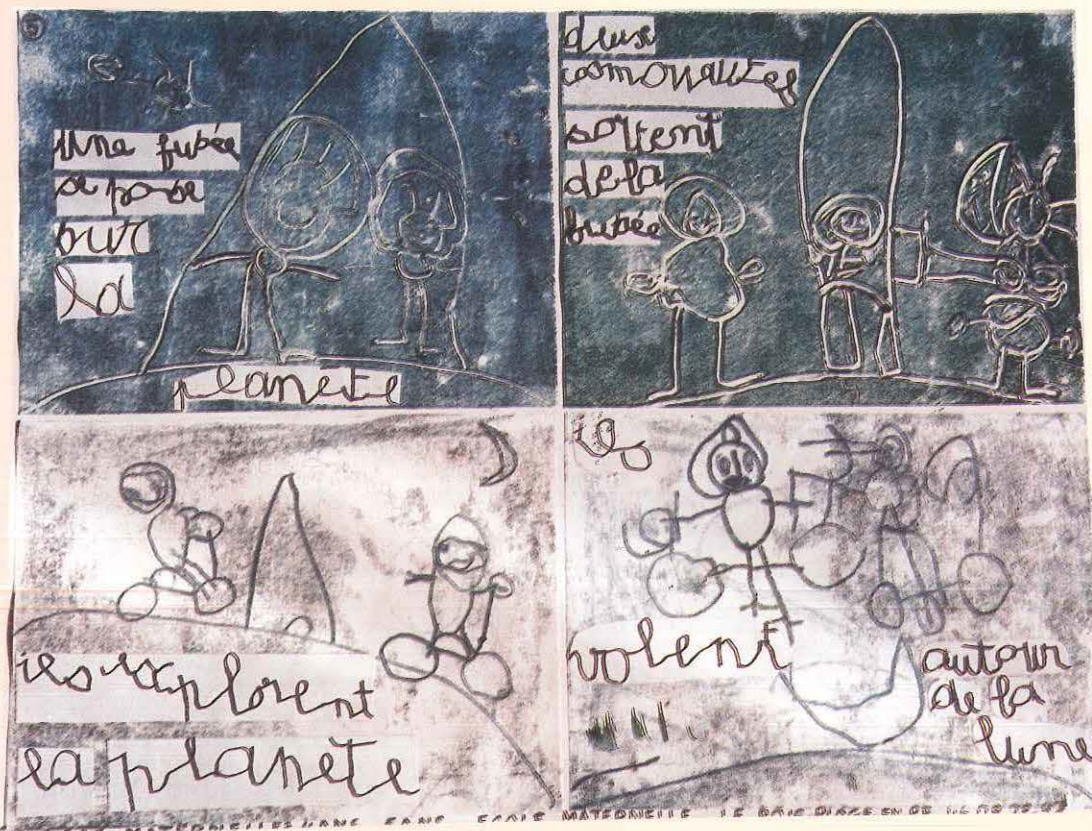 5
une fusée
se pose
sur
la
planète
deux
cosmonautes
sortent
de la
fusée
ils explorent
la planète
ils
volent
autour
de la
lune
MATERNELLE ECOLE MATERNELLE LE BOIS PLAGE EN RE